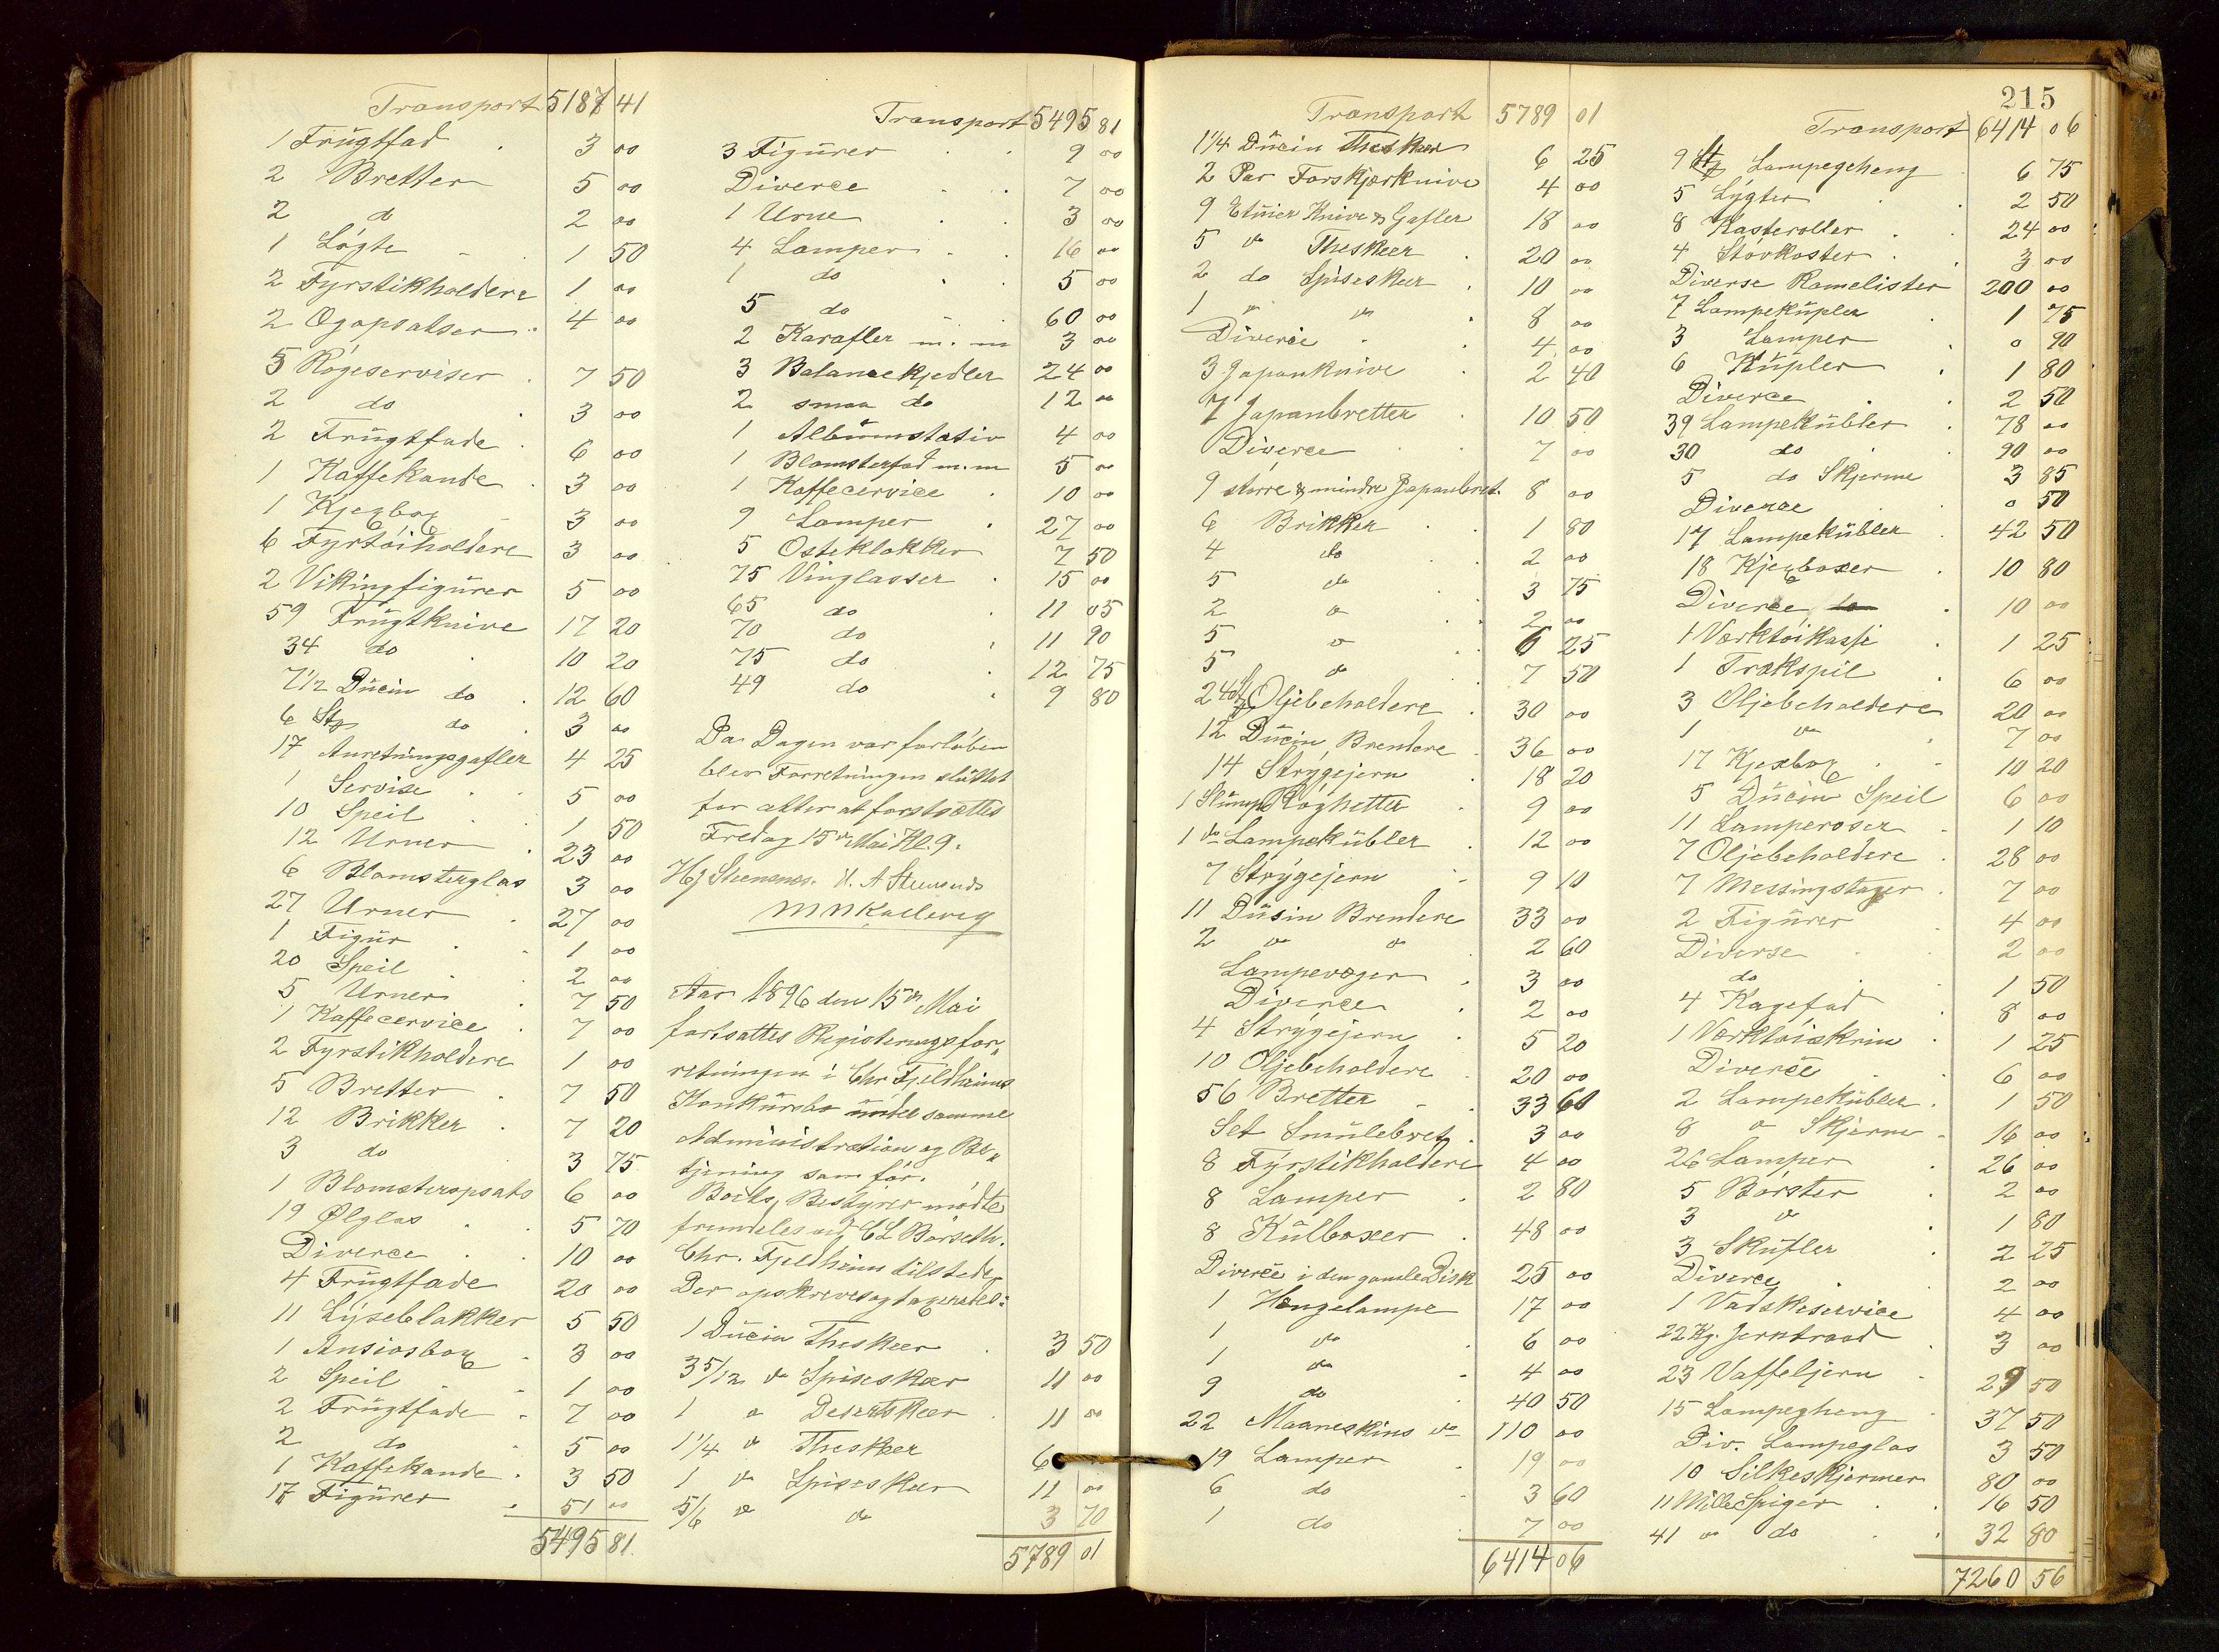 Transport 5187 41
1 Frügtfad . 3 00
2 Bretter 5 00
2 do 2 00
1 Løgte 1 50
2 Fyrstikholdere 1 00
2 Ogopsatser 4 00
5 Røgeserviser . 7 50
2 do . 3 00
2 Frügtfade . 6 00
1 Kaffekande . 3 00
1 Kjexbox 3 00
6 Fyrtøiholdere 3 00
2 Vikingfigürer 5 00
59 Frügtknive 17 20
34 do . 10 20
7 1/2 Düsin do . 12 60
6 Stk do . 3 00
17 Anretningsgafler 4 25
1 Servise . . 5 00
10 Speil . . 1 50
12 Urner . 23 00
6 Blomsterglas 3 00
27 Urner . 27 00
1 Figür . . 1 00
20 Speil . . 2 00
5 Urner . 7 50
1 Kaffecervice . 7 00
2 Fyrstikholdere 1 00
5 Bretter . 7 50
12 Brikker . 7 20
3 do 3 75
1 Blomsteropsats 6 00
19 Ølglas . . 5 70
Diverce . . 10 00
4 Frügtfade 20 00
11 Lyseblakker 5 50
1 Ansiosbox . 3 00
2 Speil . . 1 00
2 Frügtfade . 7 00
2 do . 5 00
1 Kaffekande . 3 50
17 Figürer . 51 00
5495 81
Transport 5495 81
3 Figürer . . 9 00
Diverce . . 7 00
1 Urne . . 3 00
4 Lamper . . 16 00
1 do . . 5 00
5 do . . 60 00
2 Karafler m. m 3 00
3 Balancekjedler 24 00
2 smaa do 12 00
1 Albümstativ 4 00
1 Blomsterfad m. m 5 00
1 Kaffecervice . 10 00
9 Lamper . 27 00
5 Osteklokker 7 50
75 Vinglasser . 15 00
65 do . 11 05
70 do . 11 90
75 do . 12 75
49 do . 9 80
Da Dagen var forløben
blev Forretningen slüttet
for atter at fortsættes
Fredag 15de Mai Kl. 9.
Aar 1896 den 15de Mai
fortsattes Registeringsfor„
retningen i Chr Fjeldheims
Konkürsbo ünder samme
Administration og Be„
tjening som før.
Boets Bestyrer mødte
fremdeles ved C L Børseth.
Chr. Fjeldheim tilstede,
Der opskreves og taxeredes:
1 Düsin Theskeer . 3 50
3 5/12 do Spiseskeer 11 00
1 do Desertskeer . 11 00
1 1/4 do Theskeer 6
1 do Spiseskeer 11 00
5/6 do do 3 70
5789 01
Transport 5789 01
1 1/4 Düsin Theskeer 6 25
2 Par Forskjærknive 4 00
9 Etüier Knive & Gafler 18 00
5 do Theskeer . 20 00
2 do Spiseskeer . 10 00
1 do do . 8 00
Diverce . . 4 00
3 Japanknive . 2 40
7 Japanbretter . 10 50
Diverce . . 7 00
9 større & mindre Japanbret. 8 00
6 Brikker . . 1 80
4 do . . 2 00
5 do 3 75
2 do . . 2 00
5 do . . 6 25
5 do . . 7 50
24 Stk Oljebeholdere . 30 00
12 Düsin Brendere . 36 00
14 Strygejern . 18 20
1 Slümp Røghetter . 9 00
1 do Lampekübler . 12 00
7 Strygejern . 9 10
11 Düsin Brendere 33 00
2 do do 2 60
Lampevæger . 3 00
Diverce . 2 00
4 Strygejern . 5 20
10 Oljebeholdere . 20 00
56 Bretter . . 33 60
Set Smülebret . 3 00
8 Fyrstikholdere 4 00
8 Lamper . 2 80
8 Külboxer . 48 00
Diverce i den gamle Disk 25 00
1 Hængelampe 17 00
1 do . 6 00
1 do . 4 00
9 do 40 50
22 Maaneskins do 110 00
19 Lamper . 19 00
6 do . 3 60
1 do . 7 00
6414 06
215
Transport 6414 06
9 Stk Lampegeheng . 6 75
5 Lygter . . 2 50
8 Kasteroller . 24 00
4 Støvkoster . . 3 00
Diverse Ramelister 200 00
7 Lampeküpler 1 75
3 Lamper . 0 90
6 Küpler . 1 80
Diverce . . 2 50
39 Lampekübler . 78 00
30 do . 90 00
5 do Skjerme 3 85
Diverce . 0 50
17 Lampekübler . 42 50
18 Kjexboxer . 10 80
Diverce . 10 00
1 Værktøikasse . 1 25
1 Trækspil . 6 00
3 Oljebeholdere 20 00
1 do . 7 00
17 Kjexbox . . 10 20
5 Düsin Speil 6 00
11 Lamperoser . 1 10
7 Oljebeholdere . 28 00
7 Messingstager . 7 00
2 Figürer . 4 00
Diverse . . 2 00
do . . 1 50
4 Kagefad . 8 00
1 Værktøiskrin . 1 25
Diverce . . 6 00
2 Lampekübler . 1 50
8 do Skjerme . 16 00
26 Lamper . 26 00
5 Børster . 2 00
3 do . 1 80
3 Sküfler . 2 25
Diverce . . 2 00
1 Vadskeservice . 4 00
22 Kg. Jerntraad . 3 00
23 Vaffeljern . 29 50
15 Lampegheng . 37 50
Div. Lampeglas . 3 50
10 Silkeskjermer 80 00
11 Mille Spiger . . 16 50
41 do do . . 32 80
7260 56